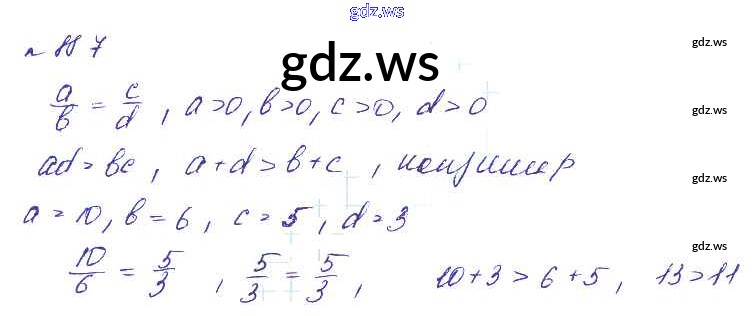 gdz.ws
№ 887
gdz.ws
gdz.ws
a/b = c/d , a>0, b>0, c>0, d>0
gdz.ws
ad = bc , a+d > b+c , например
gdz.ws
a = 10, b = 6, c = 5, d = 3
gdz.ws
10/6 = 5/3 , 5/3 = 5/3 , 10+3 > 6+5 , 13 > 11